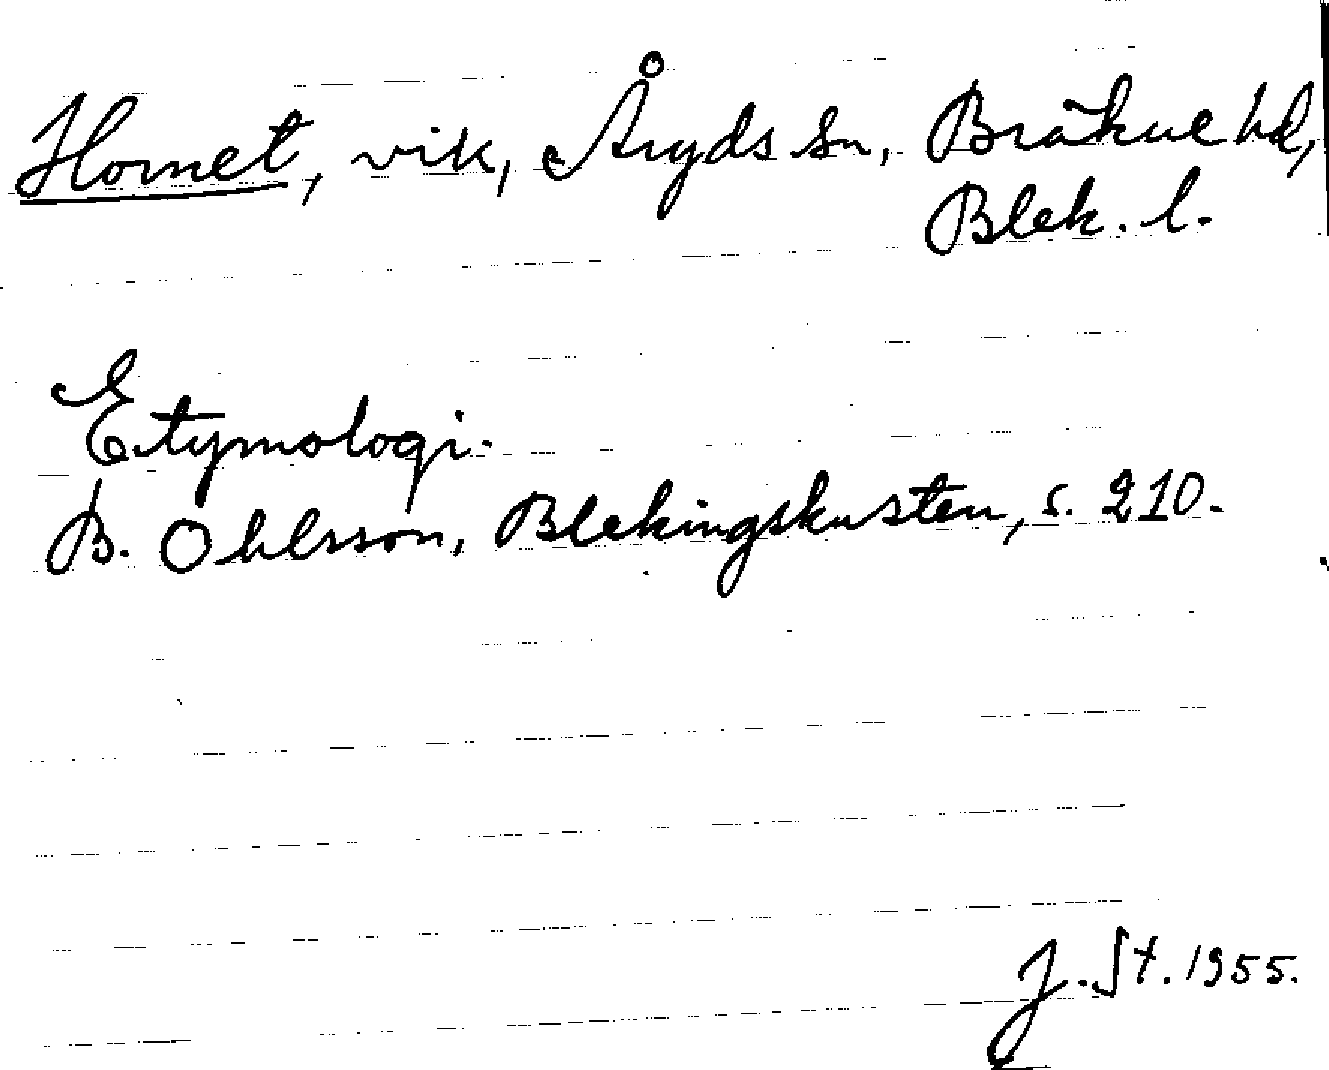 Hornet, vik, Åryds sn, Bräkne hd,
Blek. l.
Etymologi.
B. Ohlsson, Blekingskusten, s. 210.
J. St. 1955.